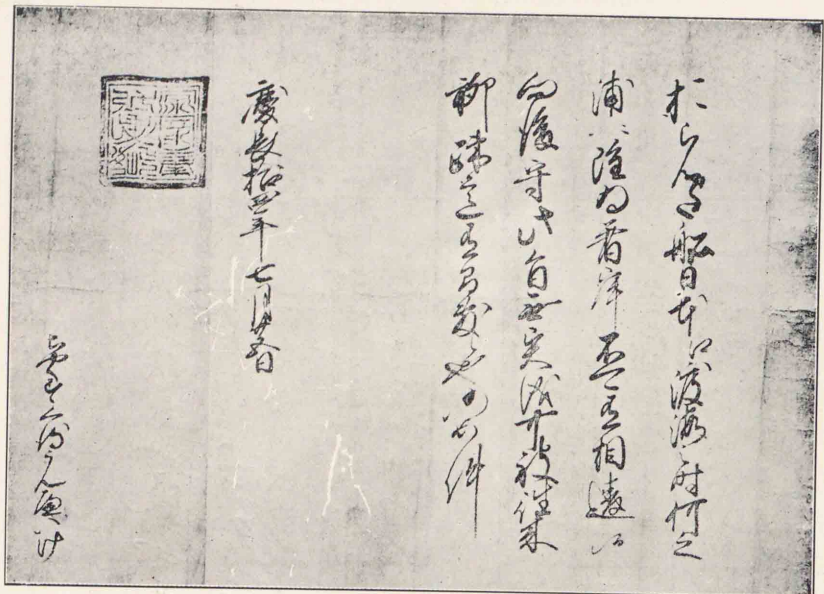 おらんた船日本江渡海之時何之
浦ニ雖為着岸不可有相違候
向後守此旨無異儀可被往来
聊疎意有間敷候也仍如件
慶長拾四年七月廿五日